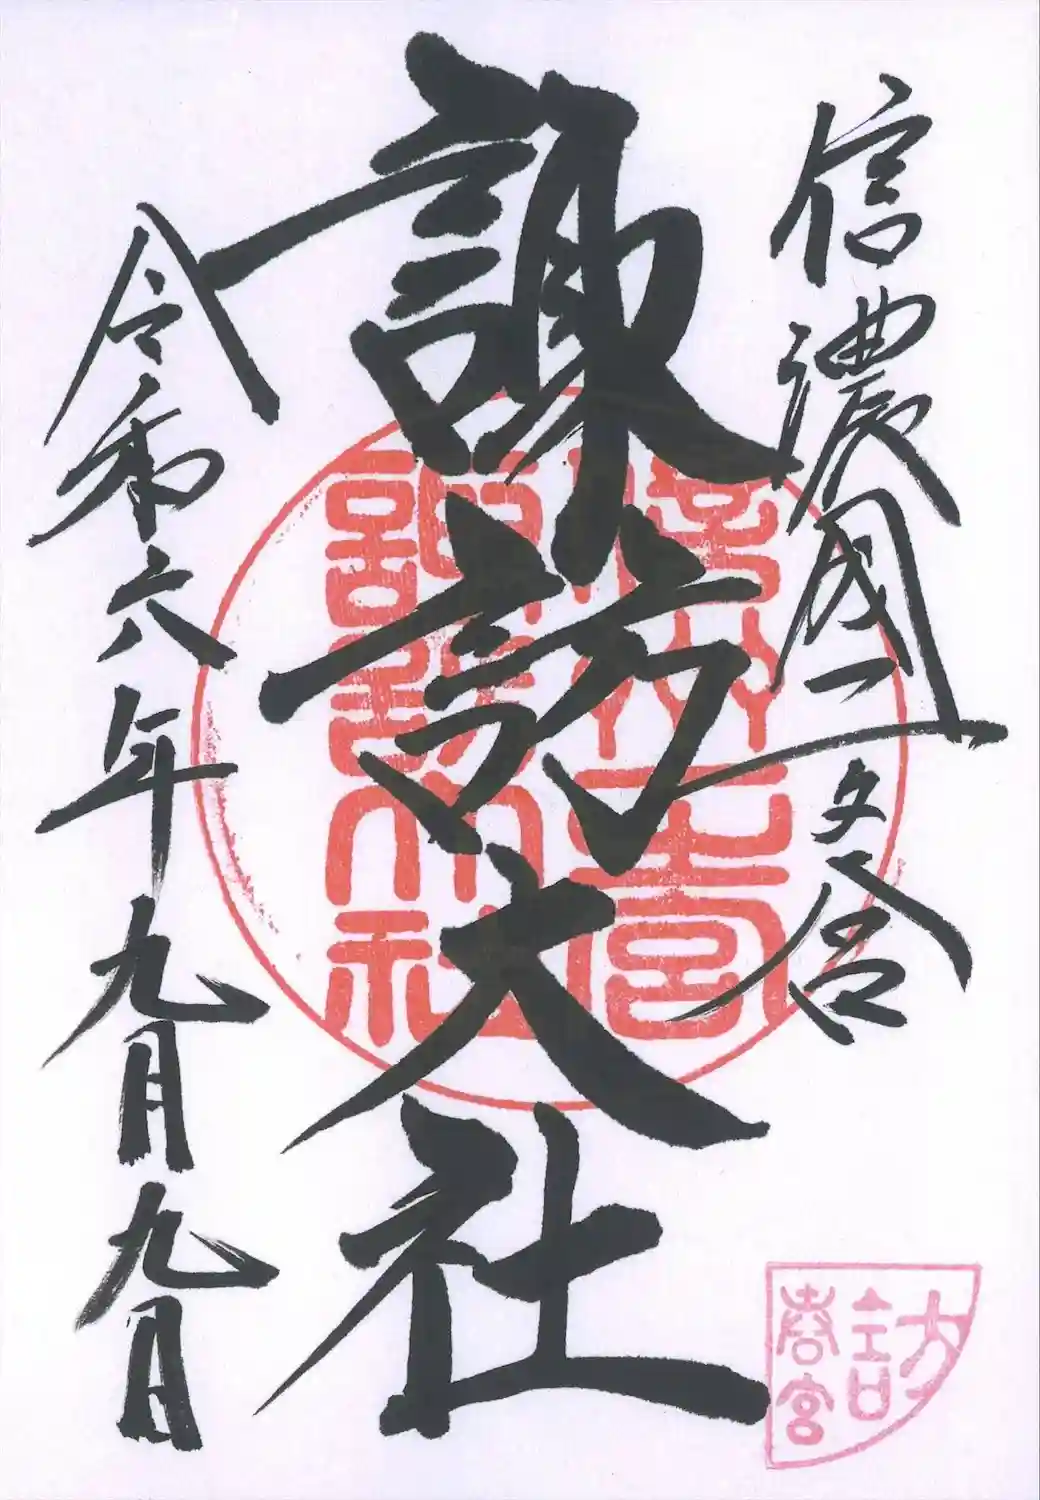 信濃國一之宮
諏訪大社
令和六年九月九日
信州一之宮
諏訪大社
訪
春宮